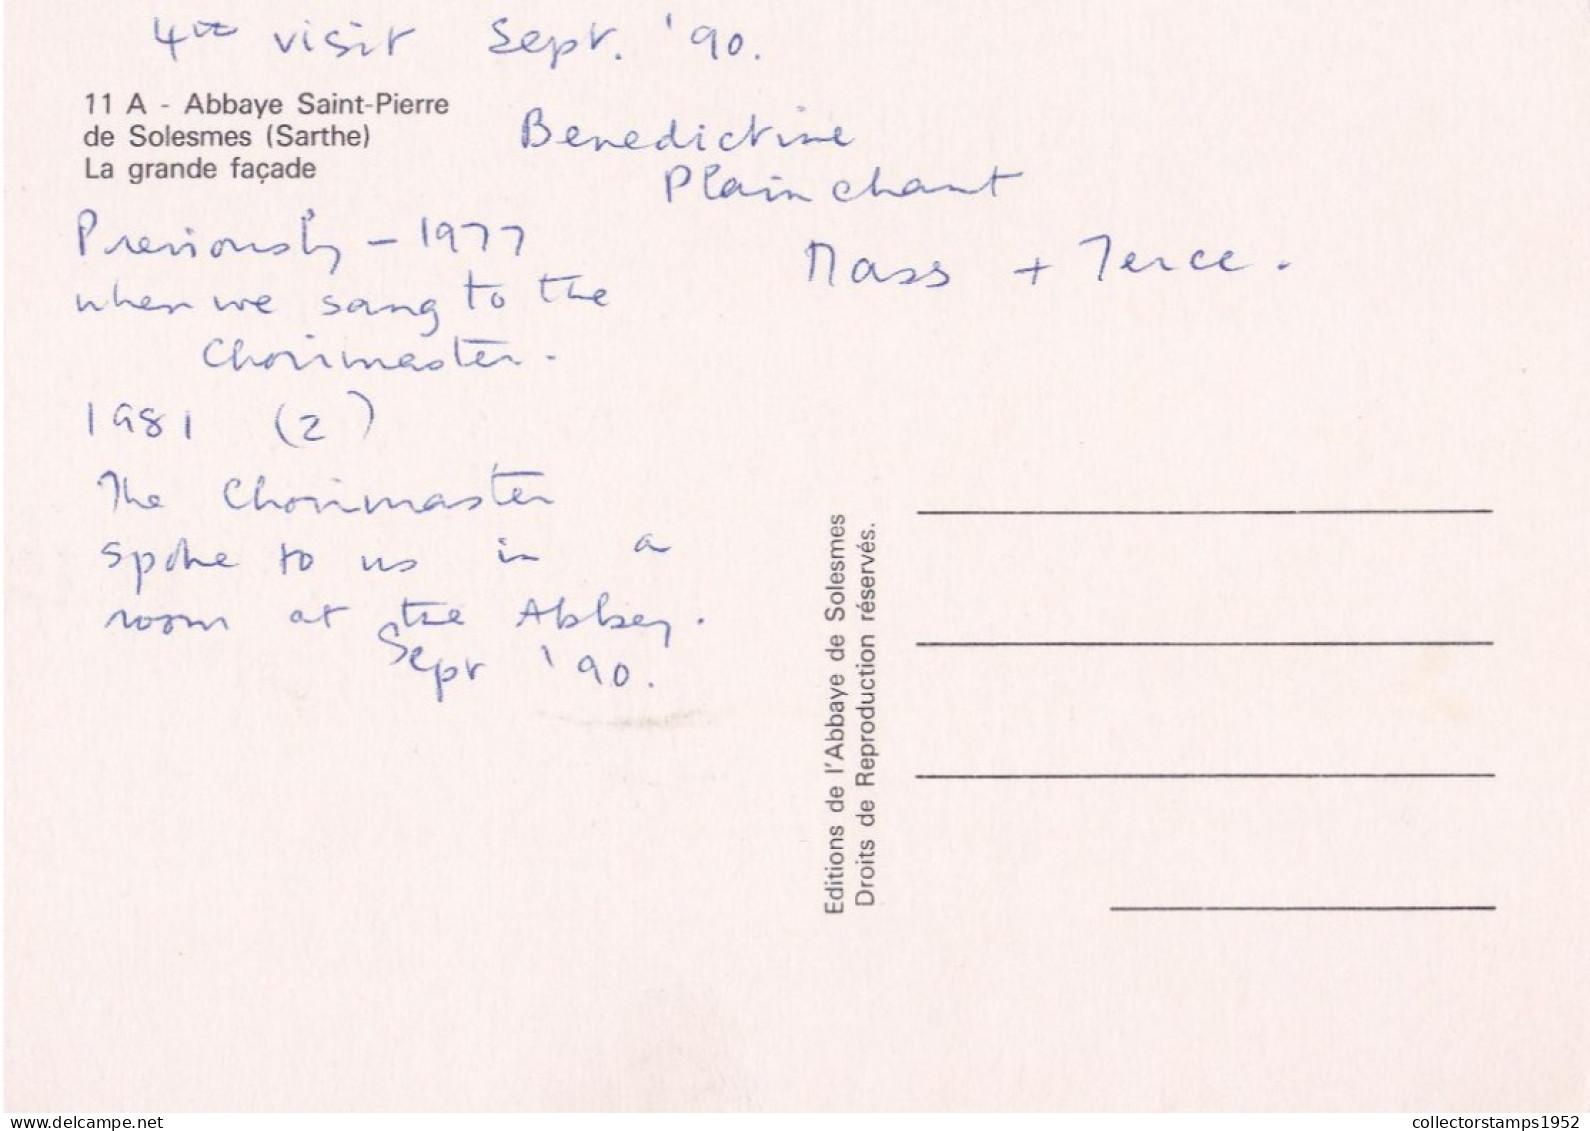 4th visit Sept. '90.
11 A - Abbaye Saint-Pierre
de Solesmes (Sarthe)
La grande façade
Benedictine
Plainchant
Mass + Terce.
Previously - 1977
when we sang to the
Choirmaster.
1981 (2)
The Choirmaster
spoke to us in a
room at the Abbey.
Sept '90.
Editions de l'Abbaye de Solesmes
Droits de Reproduction réservés.
collectorstamps1952